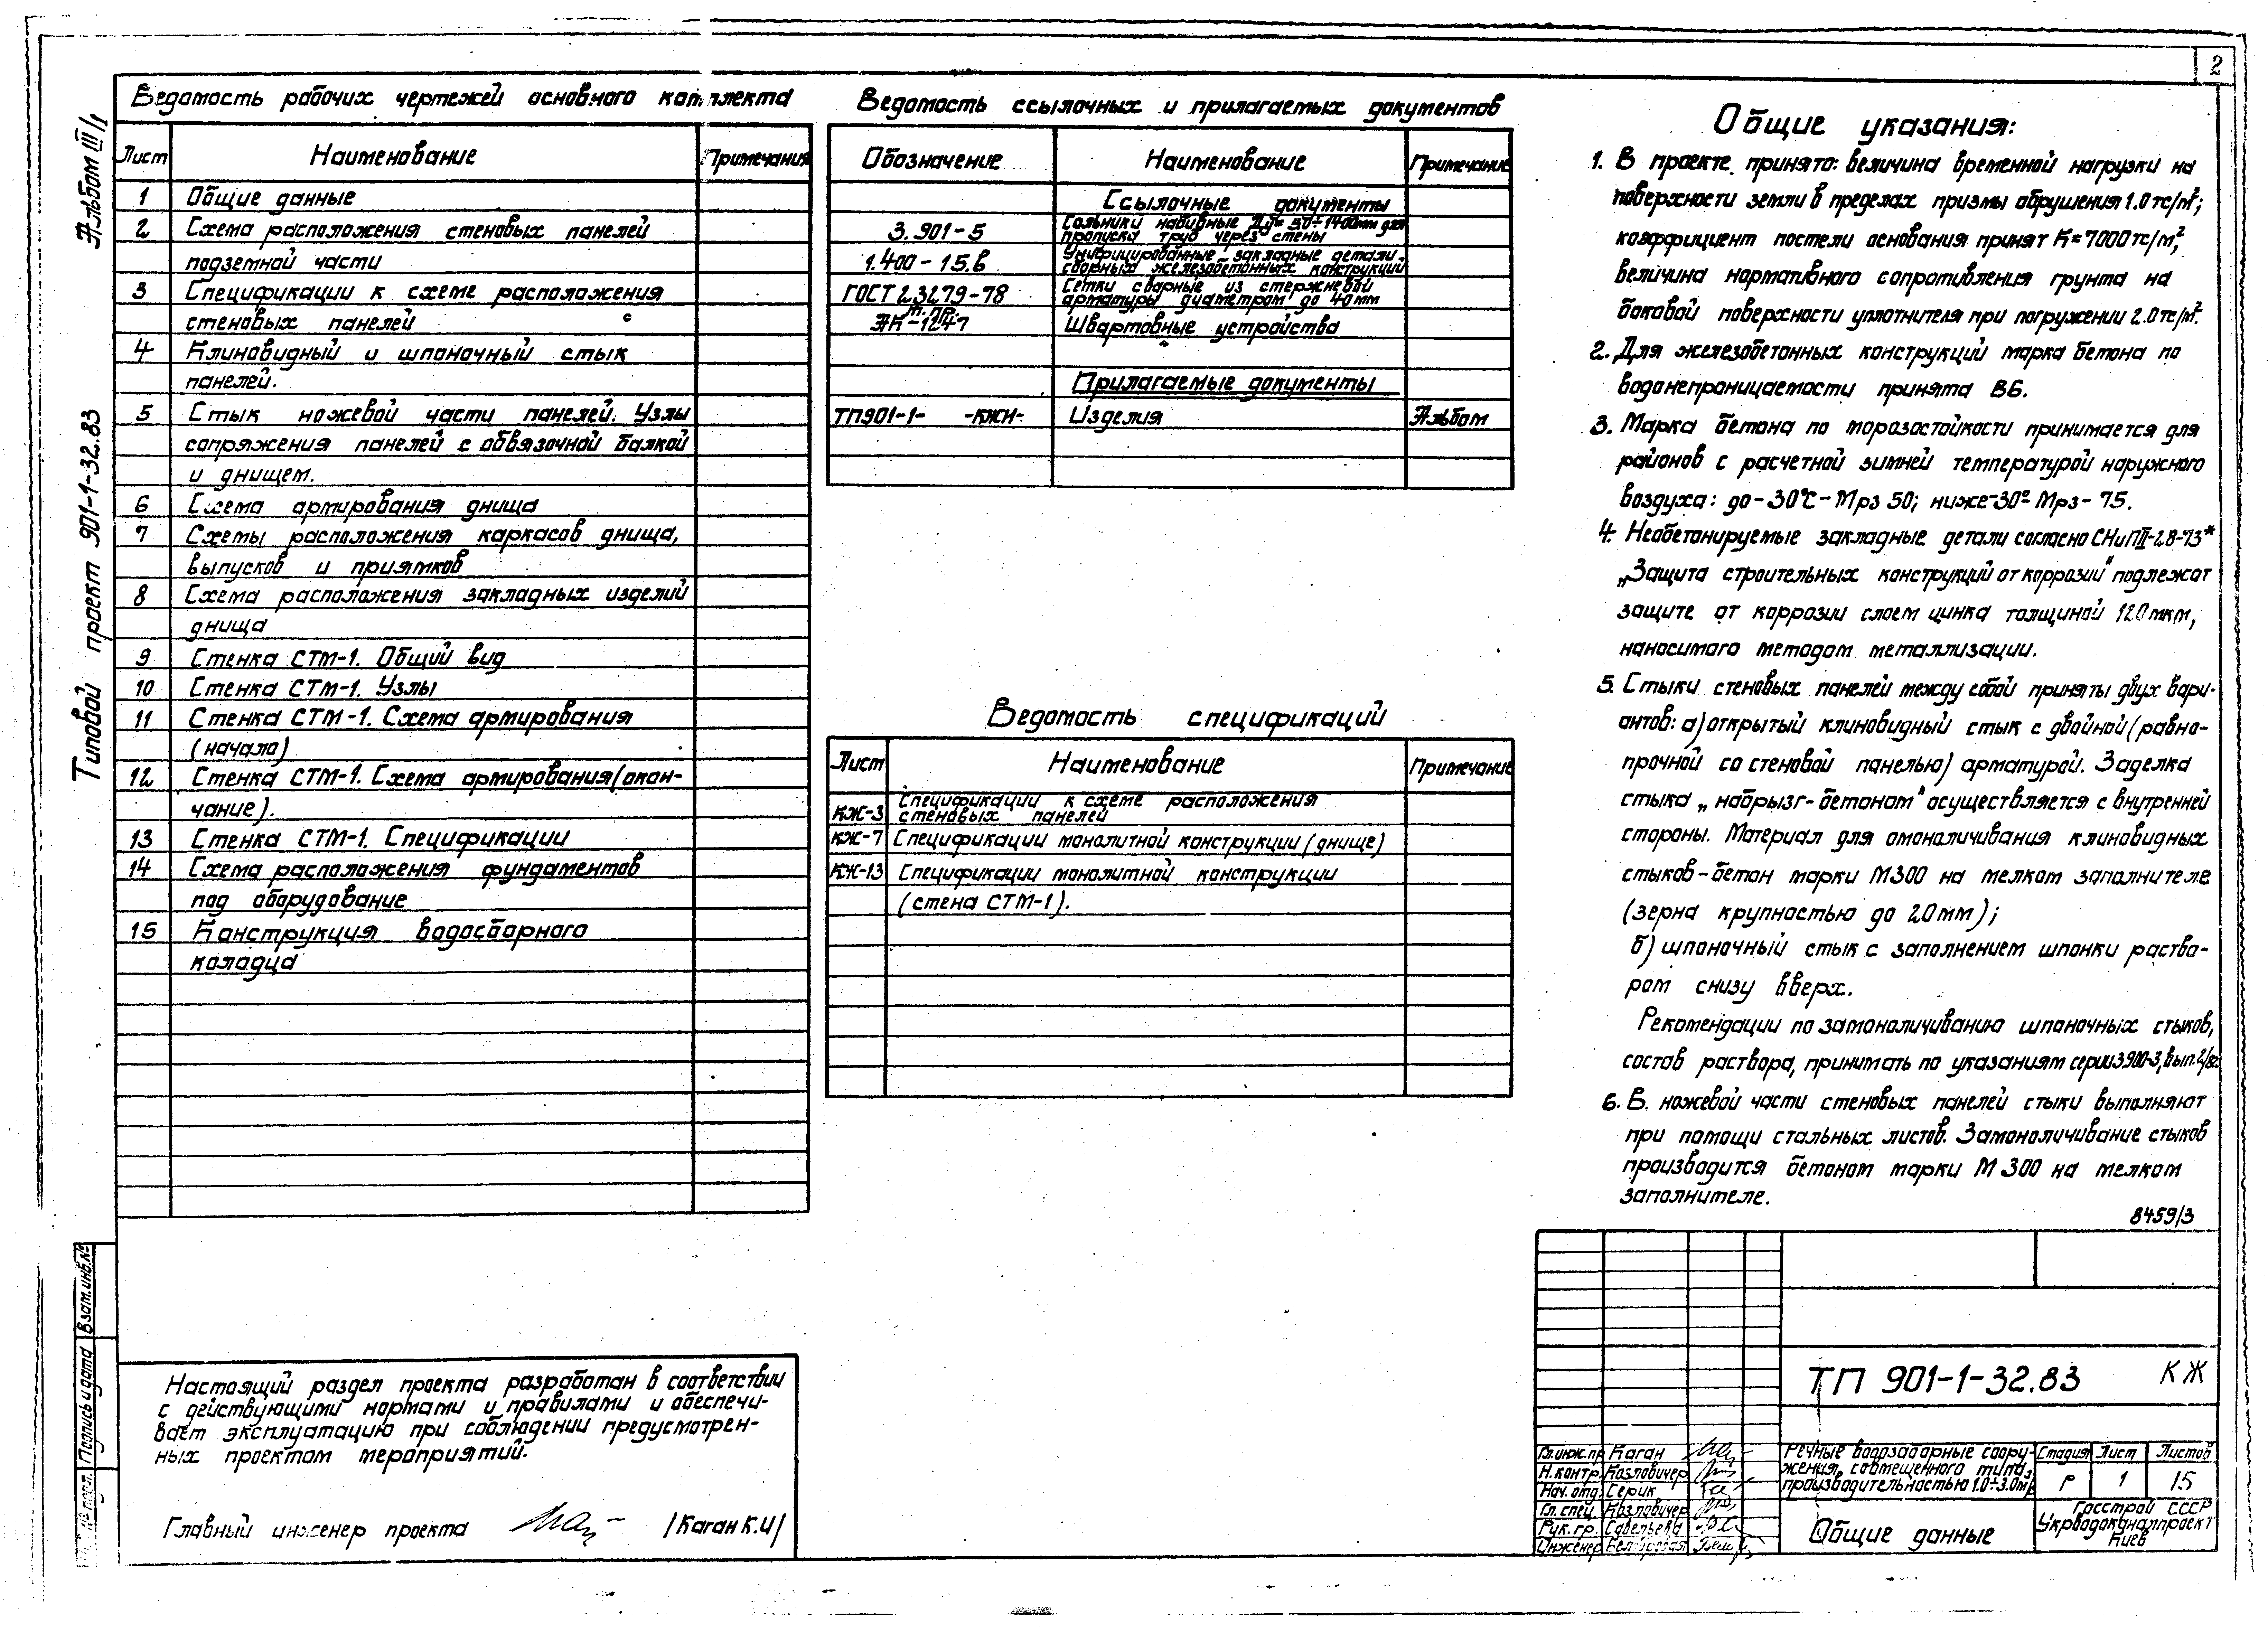 2
Альбом III/1
Типовой проект 901-1-32.83
Ведомость рабочих чертежей основного комплекта
Лист Наименование Примечания
1 Общие данные
2 Схема расположения стеновых панелей
подземной части
3 Спецификации к схеме расположения
стеновых панелей
4 Клиновидный и шпоночный стык
панелей.
5 Стык ножевой части панелей. Узлы
сопряжения панелей с обвязочной балкой
и днищем.
6 Схема армирования днища
7 Схемы расположения каркасов днища,
выпусков и приямков
8 Схема расположения закладных изделий
днища
9 Стенка СТМ-1. Общий вид
10 Стенка СТМ-1. Узлы
11 Стенка СТМ-1. Схема армирования
(начало)
12 Стенка СТМ-1. Схема армирования (окон-
чание).
13 Стенка СТМ-1. Спецификации
14 Схема расположения фундаментов
под оборудование
15 Конструкция водосборного
колодца
Ведомость ссылочных и прилагаемых документов
Обозначение Наименование Примечание
Ссылочные документы
3.901-5 Сальники набивные Ду=50÷1400мм для
пропуска труб через стены
1.400-15.в Унифицированные закладные детали
сборных железобетонных конструкций
ГОСТ 23279-78 Сетки сварные из стержневой
арматуры диаметром до 40мм
АК-1247 Швартовные устройства
Прилагаемые документы
ТП901-1- -КЖИ- Изделия Альбом
Ведомость спецификаций
Лист Наименование Примечание
КЖ-3 Спецификации к схеме расположения
стеновых панелей
КЖ-7 Спецификации монолитной конструкции (днище)
КЖ-13 Спецификации монолитной конструкции
(стена СТМ-1).
Общие указания:
1. В проекте принято: величина временной нагрузки на
поверхности земли в пределах призмы обрушения 1.0 тс/м²;
коэффициент постели основания принят К=7000 тс/м²,
величина нормативного сопротивления грунта на
боковой поверхности уплотнителя при погружении 2.0 тс/м².
2. Для железобетонных конструкций марка бетона по
водонепроницаемости принята В6.
3. Марка бетона по морозостойкости принимается для
районов с расчетной зимней температурой наружного
воздуха: до -30°С - Мрз 50; ниже -30° Мрз - 75.
4. Необетонируемые закладные детали согласно СНиП III-28-73*
„Защита строительных конструкций от коррозии" подлежат
защите от коррозии слоем цинка толщиной 120 мкм,
наносимого методом металлизации.
5. Стыки стеновых панелей между собой приняты двух вари-
антов: а) открытый клиновидный стык с двойной (равно-
прочной со стеновой панелью) арматурой. Заделка
стыка „набрызг-бетоном" осуществляется с внутренней
стороны. Материал для омоноличивания клиновидных
стыков - бетон марки М300 на мелком заполнителе
(зерна крупностью до 20мм);
б) шпоночный стык с заполнением шпонки раство-
ром снизу вверх.
Рекомендации по замоноличиванию шпоночных стыков,
состав раствора, принимать по указаниям серии 3.900-3, вып.2/82
6. В ножевой части стеновых панелей стыки выполняют
при помощи стальных листов. Замоноличивание стыков
производится бетоном марки М 300 на мелком
заполнителе.
8459/3
Настоящий раздел проекта разработан в соответствии
с действующими нормами и правилами и обеспечи-
вает эксплуатацию при соблюдении предусмотрен-
ных проектом мероприятий.
Главный инженер проекта /Каган К.И/
Взам.инв.№
Подпись и дата
№ подл.
ТП 901-1-32.83 КЖ
Гл.инж.пр Каган
Н.контр. Козловичер
Нач. отд. Серик
Гл. спец. Козловичер
Рук. гр. Савельева
Инженер
Речные водозаборные соору-
жения совмещенного типа,
производительностью 1.0÷3.0м³/с
Стадия Лист Листов
Р 1 15
Общие данные
Госстрой СССР
Укрводоканалпроект
Киев